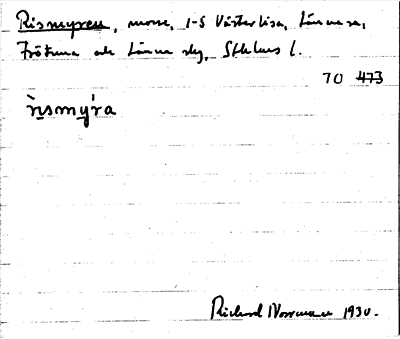 Rismyren, mosse, 1-S Västerlisa, Länna sn,
Frötuna och Länna skg, Sthlms l.
70 473
rìsmy´ra
Richard Norrman 1930.